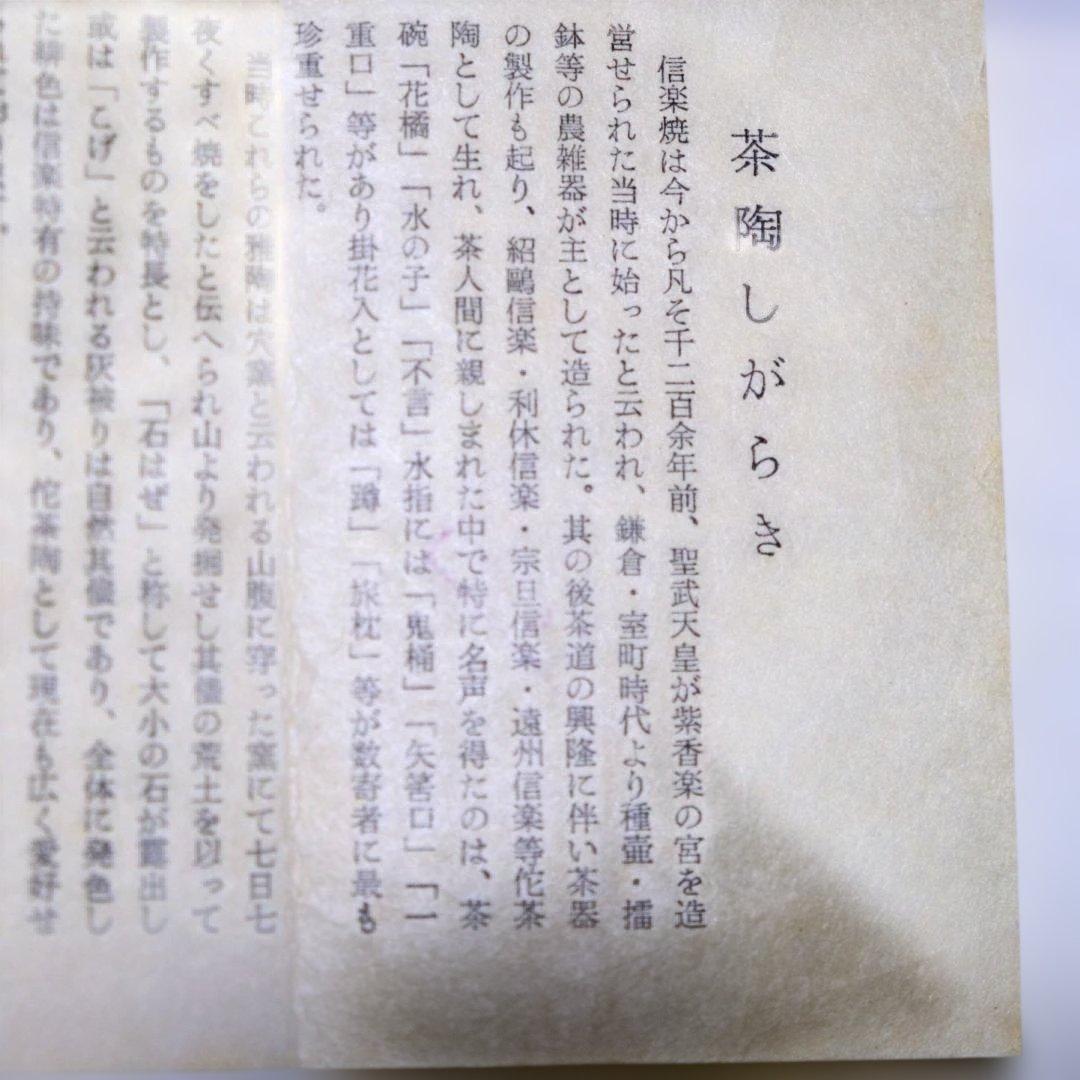 茶陶しがらき
信楽焼は今から凡そ千二百余年前、聖武天皇が紫香楽の宮を造
営せられた当時に始ったと云われ、鎌倉・室町時代より種壷・擂
鉢等の農雑器が主として造られた。其の後茶道の興隆に伴い茶器
の製作も起り、紹鷗信楽・利休信楽・宗旦信楽・遠州信楽等侘茶
陶として生れ、茶人間に親しまれた中で特に名声を得たのは、茶
碗「花橘」「水の子」「不言」水指には「鬼桶」「矢筈口」「一
重口」等があり掛花入としては「蹲」「旅枕」等が数寄者に最も
珍重せられた。
当時これらの雅陶は穴窯と云われる山腹に穿った窯にて七日七
夜くすべ焼をしたと伝へられ山より発掘せし其儘の荒土を以って
製作するものを特長とし、「石はぜ」と称して大小の石が露出し
或は「こげ」と云われる灰被りは自然其儘であり、全体に発色し
た緋色は信楽特有の持味であり、侘茶陶として現在も広く愛好せ